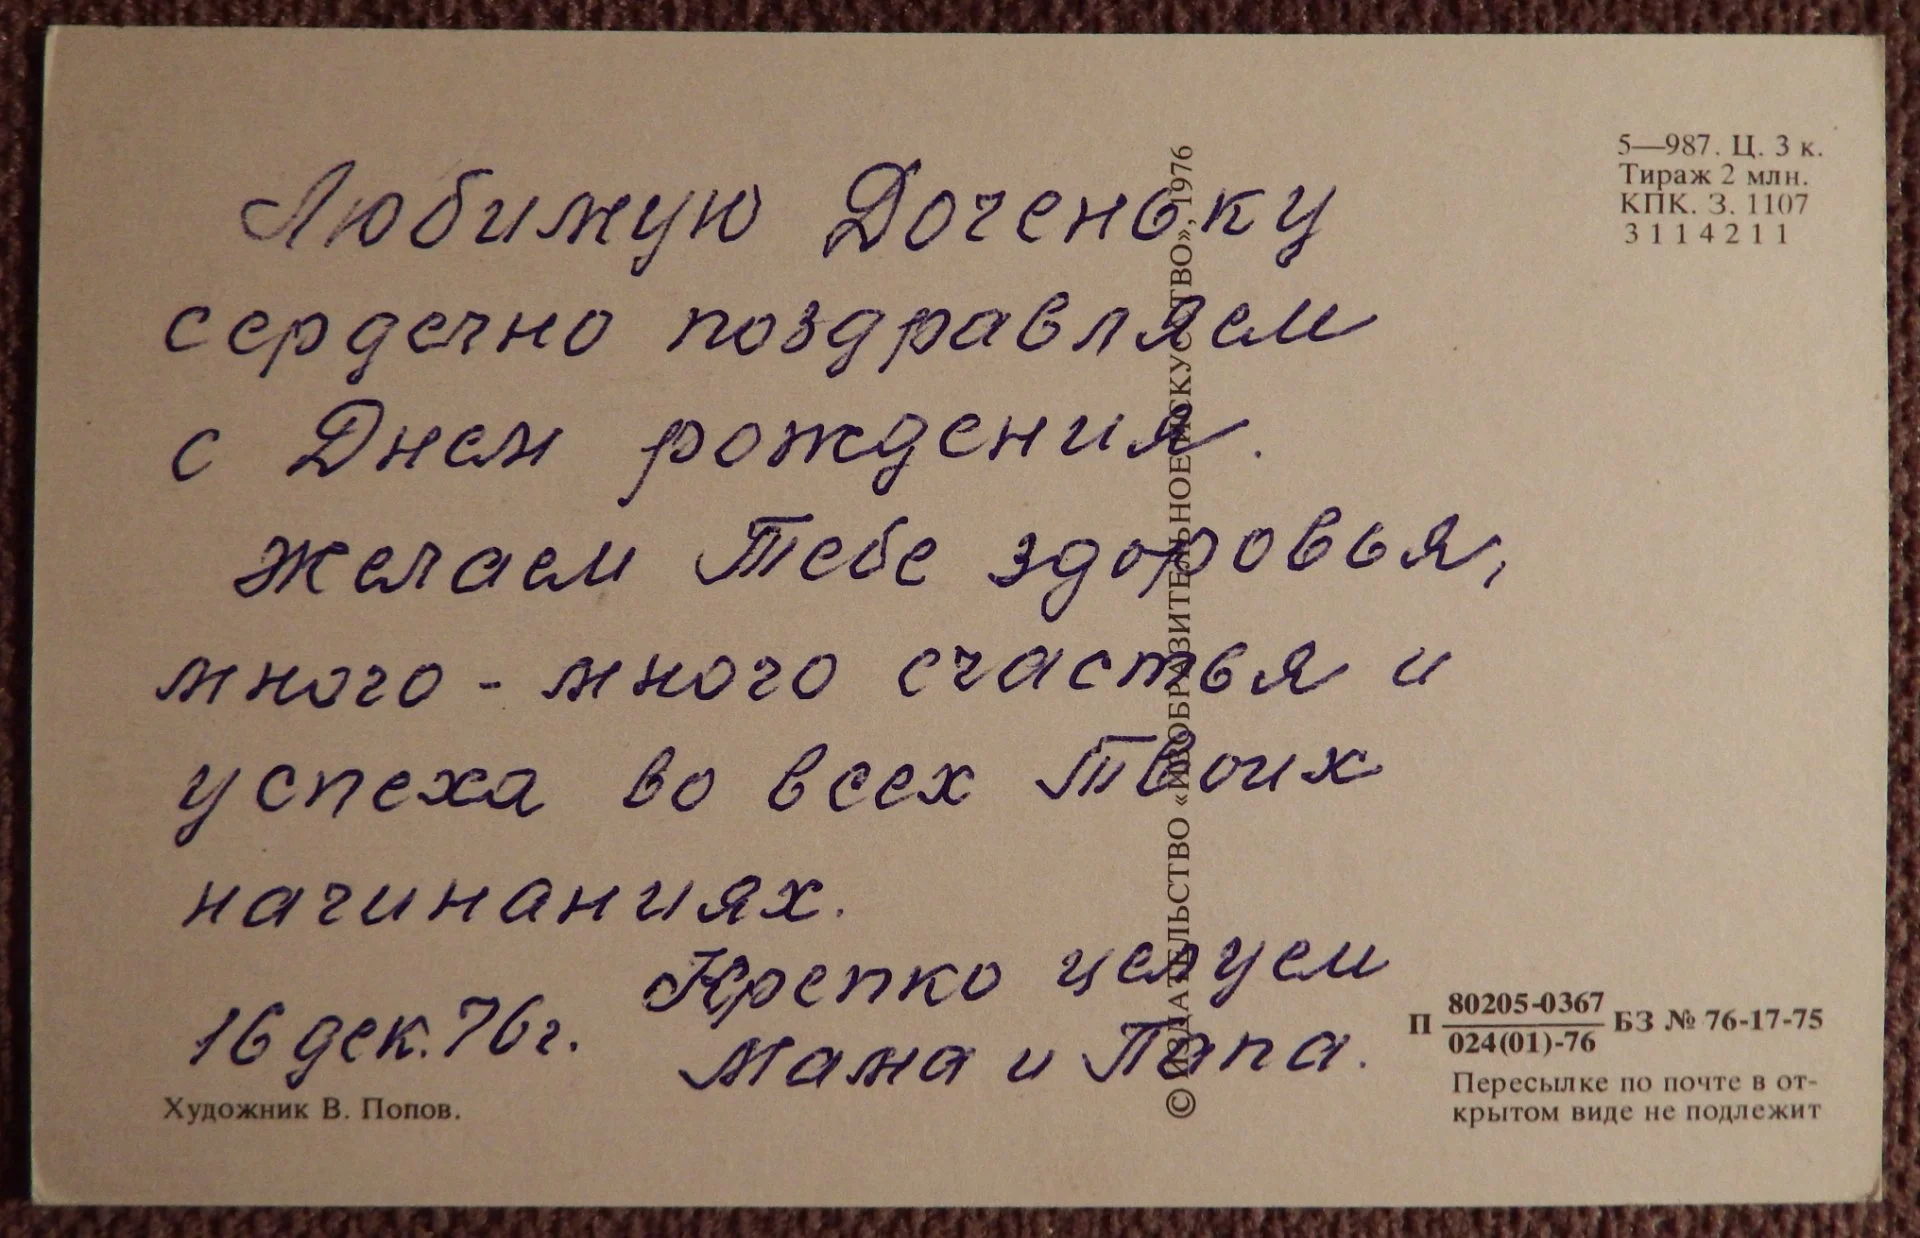 Любимую Доченьку
сердечно поздравляем
с Днем рождения.
Желаем Тебе здоровья,
много - много счастья и
успеха во всех Твоих
начинаниях.
Крепко целуем
16 дек. 76 г.
Мама и Папа.
Художник В. Попов.
© ИЗДАТЕЛЬСТВО «ИЗОБРАЗИТЕЛЬНОЕ ИСКУССТВО», 1976
5—987. Ц. 3 к.
Тираж 2 млн.
КПК. З. 1107
3114211
П 80205-0367 БЗ № 76-17-75
024(01)-76
Пересылке по почте в от-
крытом виде не подлежит